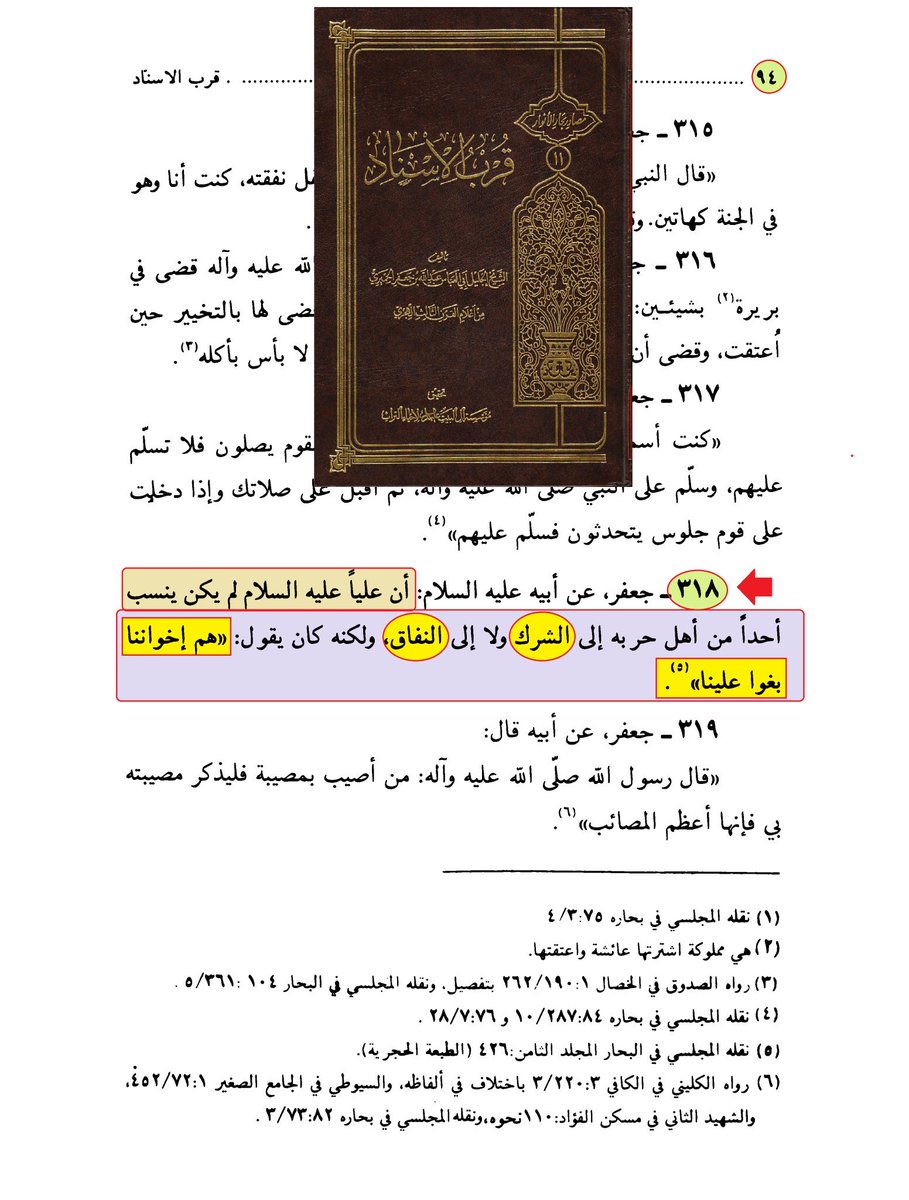 ٩٤ ........................ قرب الاسناد
٣١٥ ـ جع
«قال النبي ل نفقته، كنت أنا وهو
في الجنة كهاتين. و .
٣١٦ ـ ج لله عليه وآله قضى في
بريرة(٢) بشيئين: ضى لها بالتخيير حين
أُعتقت، وقضى أن لا بأس بأكله»(٣).
٣١٧ ـ جعف
«كنت أسم قوم يصلون فلا تسلّم
عليهم، وسلّم على النبي صلى الله عليه وآله، ثم أقبل على صلاتك وإذا دخلت
على قوم جلوس يتحدثون فسلّم عليهم»(٤).
٣١٨ ـ جعفر، عن أبيه عليه السلام: أن علياً عليه السلام لم يكن ينسب
أحداً من أهل حربه إلى الشرك ولا إلى النفاق، ولكنه كان يقول: «هم إخواننا
بغوا علينا»(٥).
٣١٩ ـ جعفر، عن أبيه قال:
«قال رسول الله صلّى الله عليه وآله: من أصيب بمصيبة فليذكر مصيبته
بي فإنها أعظم المصائب»(٦).
(١) نقله المجلسي في بحاره ٧٥:٤/٣
(٢) هي مملوكة اشترتها عائشة واعتقتها.
(٣) رواه الصدوق في الخصال ١:٢٦٢/١٩٠ بتفصيل، ونقله المجلسي في البحار ١٠٤ :٥/٣٦١ .
(٤) نقله المجلسي في بحاره ٨٤:١٠/٢٨٧ و ٧٦:٢٨/٧ .
(٥) نقله المجلسي في البحار المجلد الثامن:٤٢٦ (الطبعة الحجرية).
(٦) رواه الكليني في الكافي ٣:٣/٢٢٠ باختلاف في ألفاظه، والسيوطي في الجامع الصغير ١:٤٥٢/٧٢،
والشهيد الثاني في مسكن الفؤاد:١١٠نحوه،ونقله المجلسي في بحاره ٨٢:٣/٧٣ .
مصادر بحار الأنوار
١١
قرب الإسناد
تأليف
الشيخ الجليل أبي العباس عبد الله بن جعفر الحميري
من أعلام القرن الثالث الهجري
تحقيق
مؤسسة آل البيت عليهم السلام لإحياء التراث